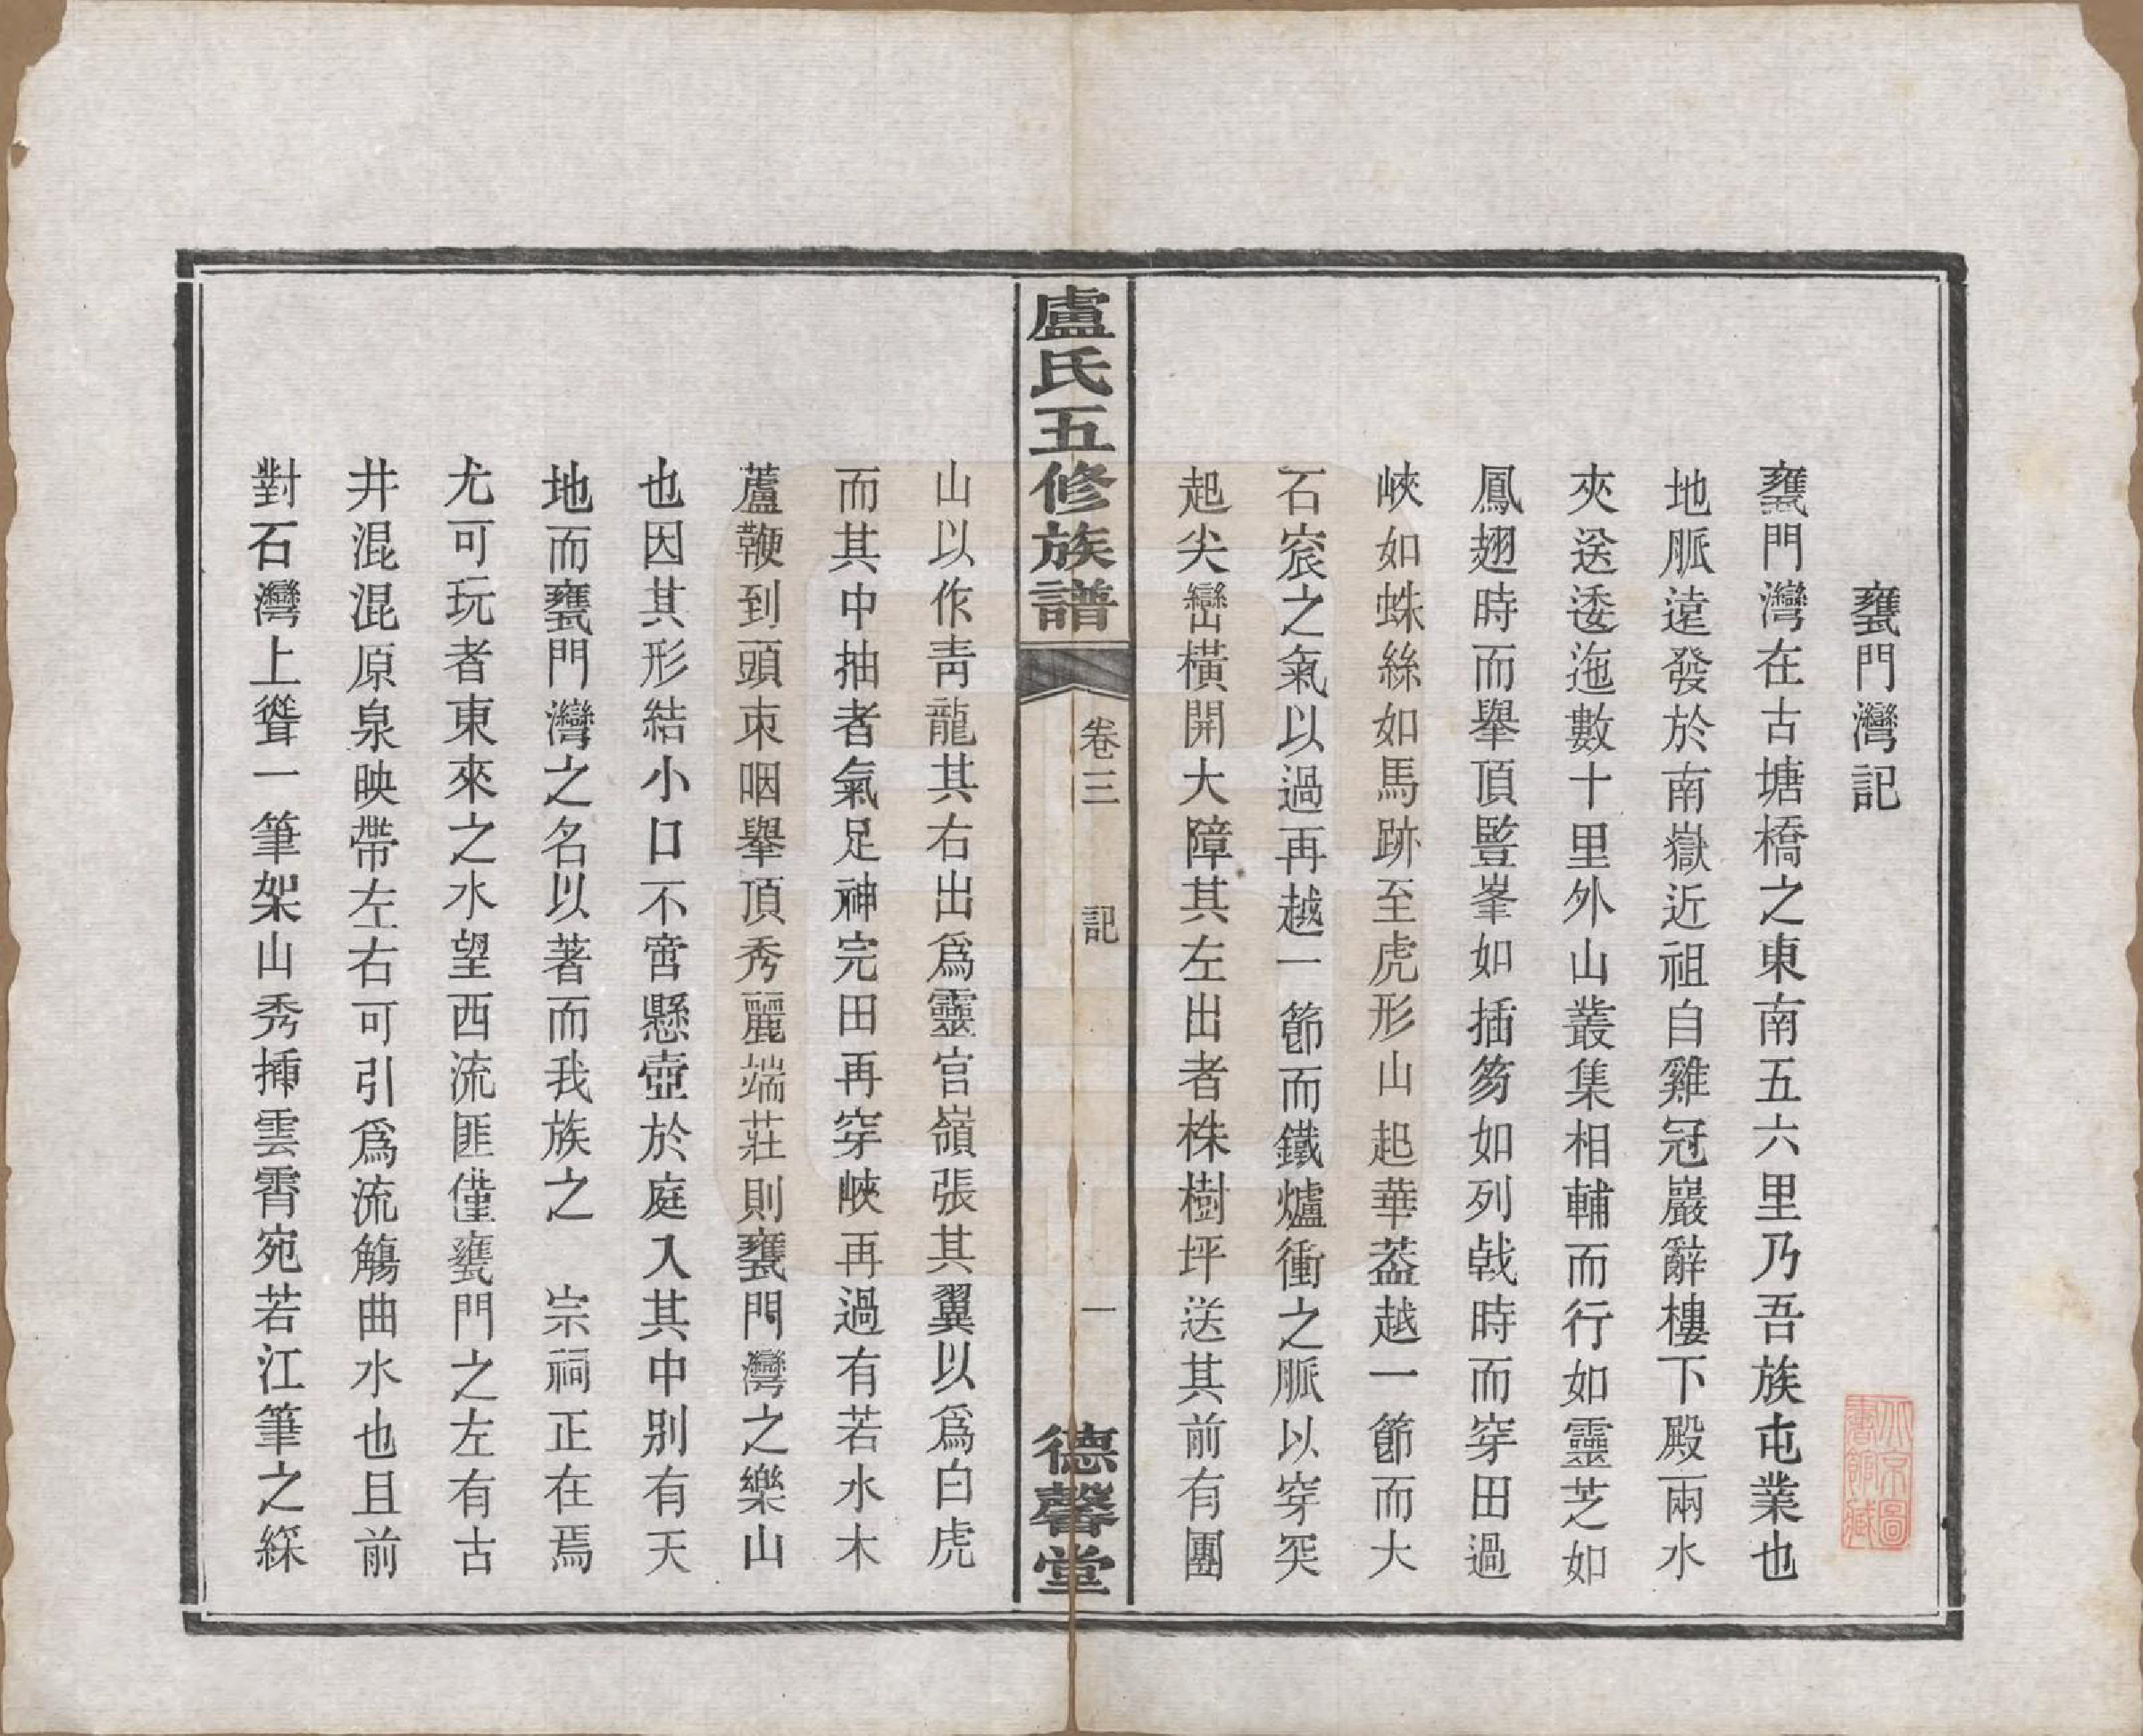 甕門灣記
甕門灣在古塘橋之東南五六里乃吾族屯業也
地脈遠發於南嶽近祖自雞冠巖辭樓下殿兩水
夾送逶迤數十里外山叢集相輔而行如靈芝如
鳳翅時而舉頂豎峯如插笏如列戟時而穿田過
峽如蛛絲如馬跡至虎形山起華葢越一節而大
石㝔之氣以過再越一節而鐵爐衝之脈以穿突
起尖巒橫開大障其左出者株樹坪送其前有團
盧氏五修族譜
卷三
記
一
德馨堂
山以作青龍其右出爲靈官嶺張其翼以爲白虎
而其中抽者氣足神完田再穿峽再過有若水木
蘆鞭到頭束咽舉頂秀麗端莊則甕門灣之樂山
也因其形結小口不啻懸壺於庭入其中別有天
地而甕門灣之名以著而我族之　宗祠正在焉
尤可玩者東來之水望西流匪僅甕門之左有古
井混混原泉映帶左右可引爲流觴曲水也且前
對石灣上聳一筆架山秀插雲霄宛若江筆之綵